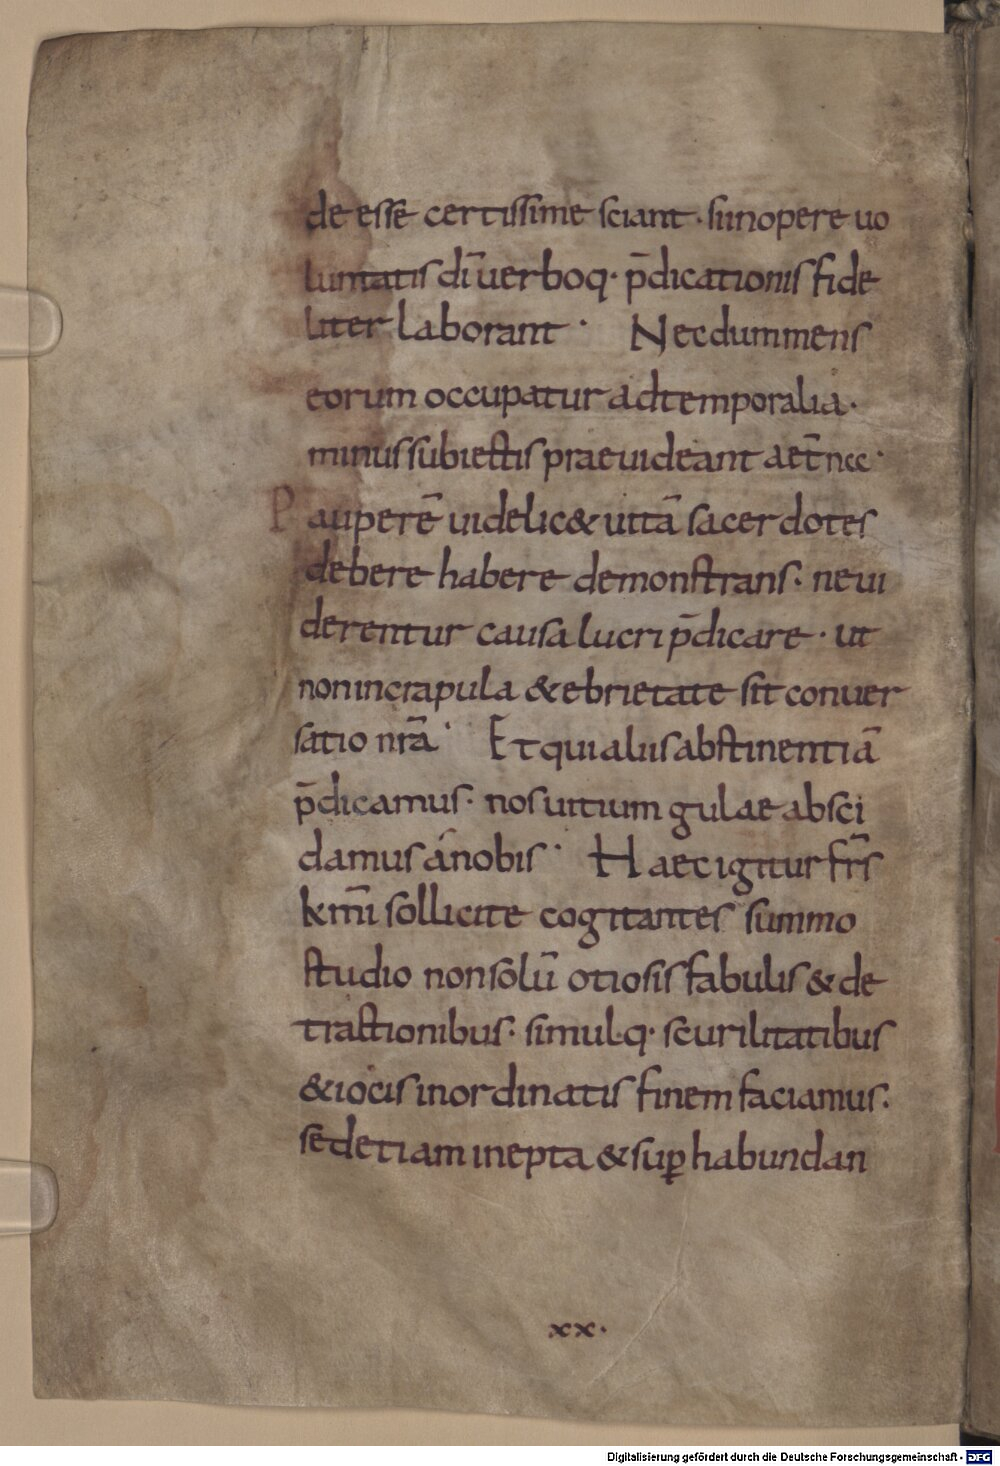 de esse certissime sciant · si in opere uo
luntatis dī uerboq· p̄dicationis fide
liter laborant · Nec dum mens
eorum occupatur ad temporalia ·
minus subiectis praeuideant aet̄n
Pauperē uidelic& uitā sacerdotes
debere habere demonstrans · ne ui
derentur causa lucri p̄dicare · ut
non in crapula & ebrietate sit conuer
satio nr̄a · Et qui aliis abstinentiā
p̄dicamus · nos uitium gulae absci
damus a nobis · Haec igitur fr̄s
km̄i sollicite cogitantes summo
studio non solū otiosis fabulis & de
tractionibus · simulq· scurilitatibus
& iocis inordinatis finem faciamus ·
sed etiam inepta & suꝑhabundan
xx·
Digitalisierung gefördert durch die Deutsche Forschungsgemeinschaft - DFG